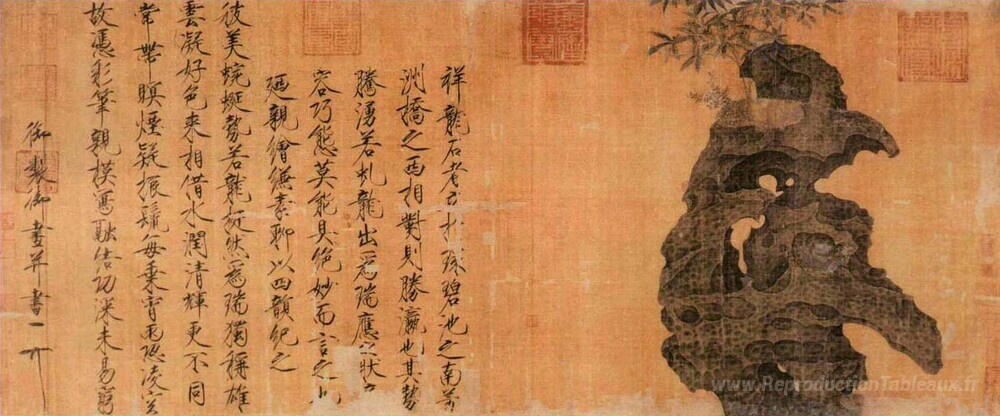 祥龍石者立於環碧池之南芳
洲橋之西相對則勝瀛也其勢
騰湧若虬龍出為瑞應之狀奇
容巧態莫能具絕妙而言之也
廼親繪縑素聊以四韻紀之
彼美蜿蜒勢若龍挺然為瑞獨稱雄
雲凝好色來相借水潤清輝更不同
常帶暝煙疑振鬣每乘宵雨恐凌空
故憑彩筆親模寫融結功深未易窮
御製御畫并書
www.ReproductionTableaux.fr